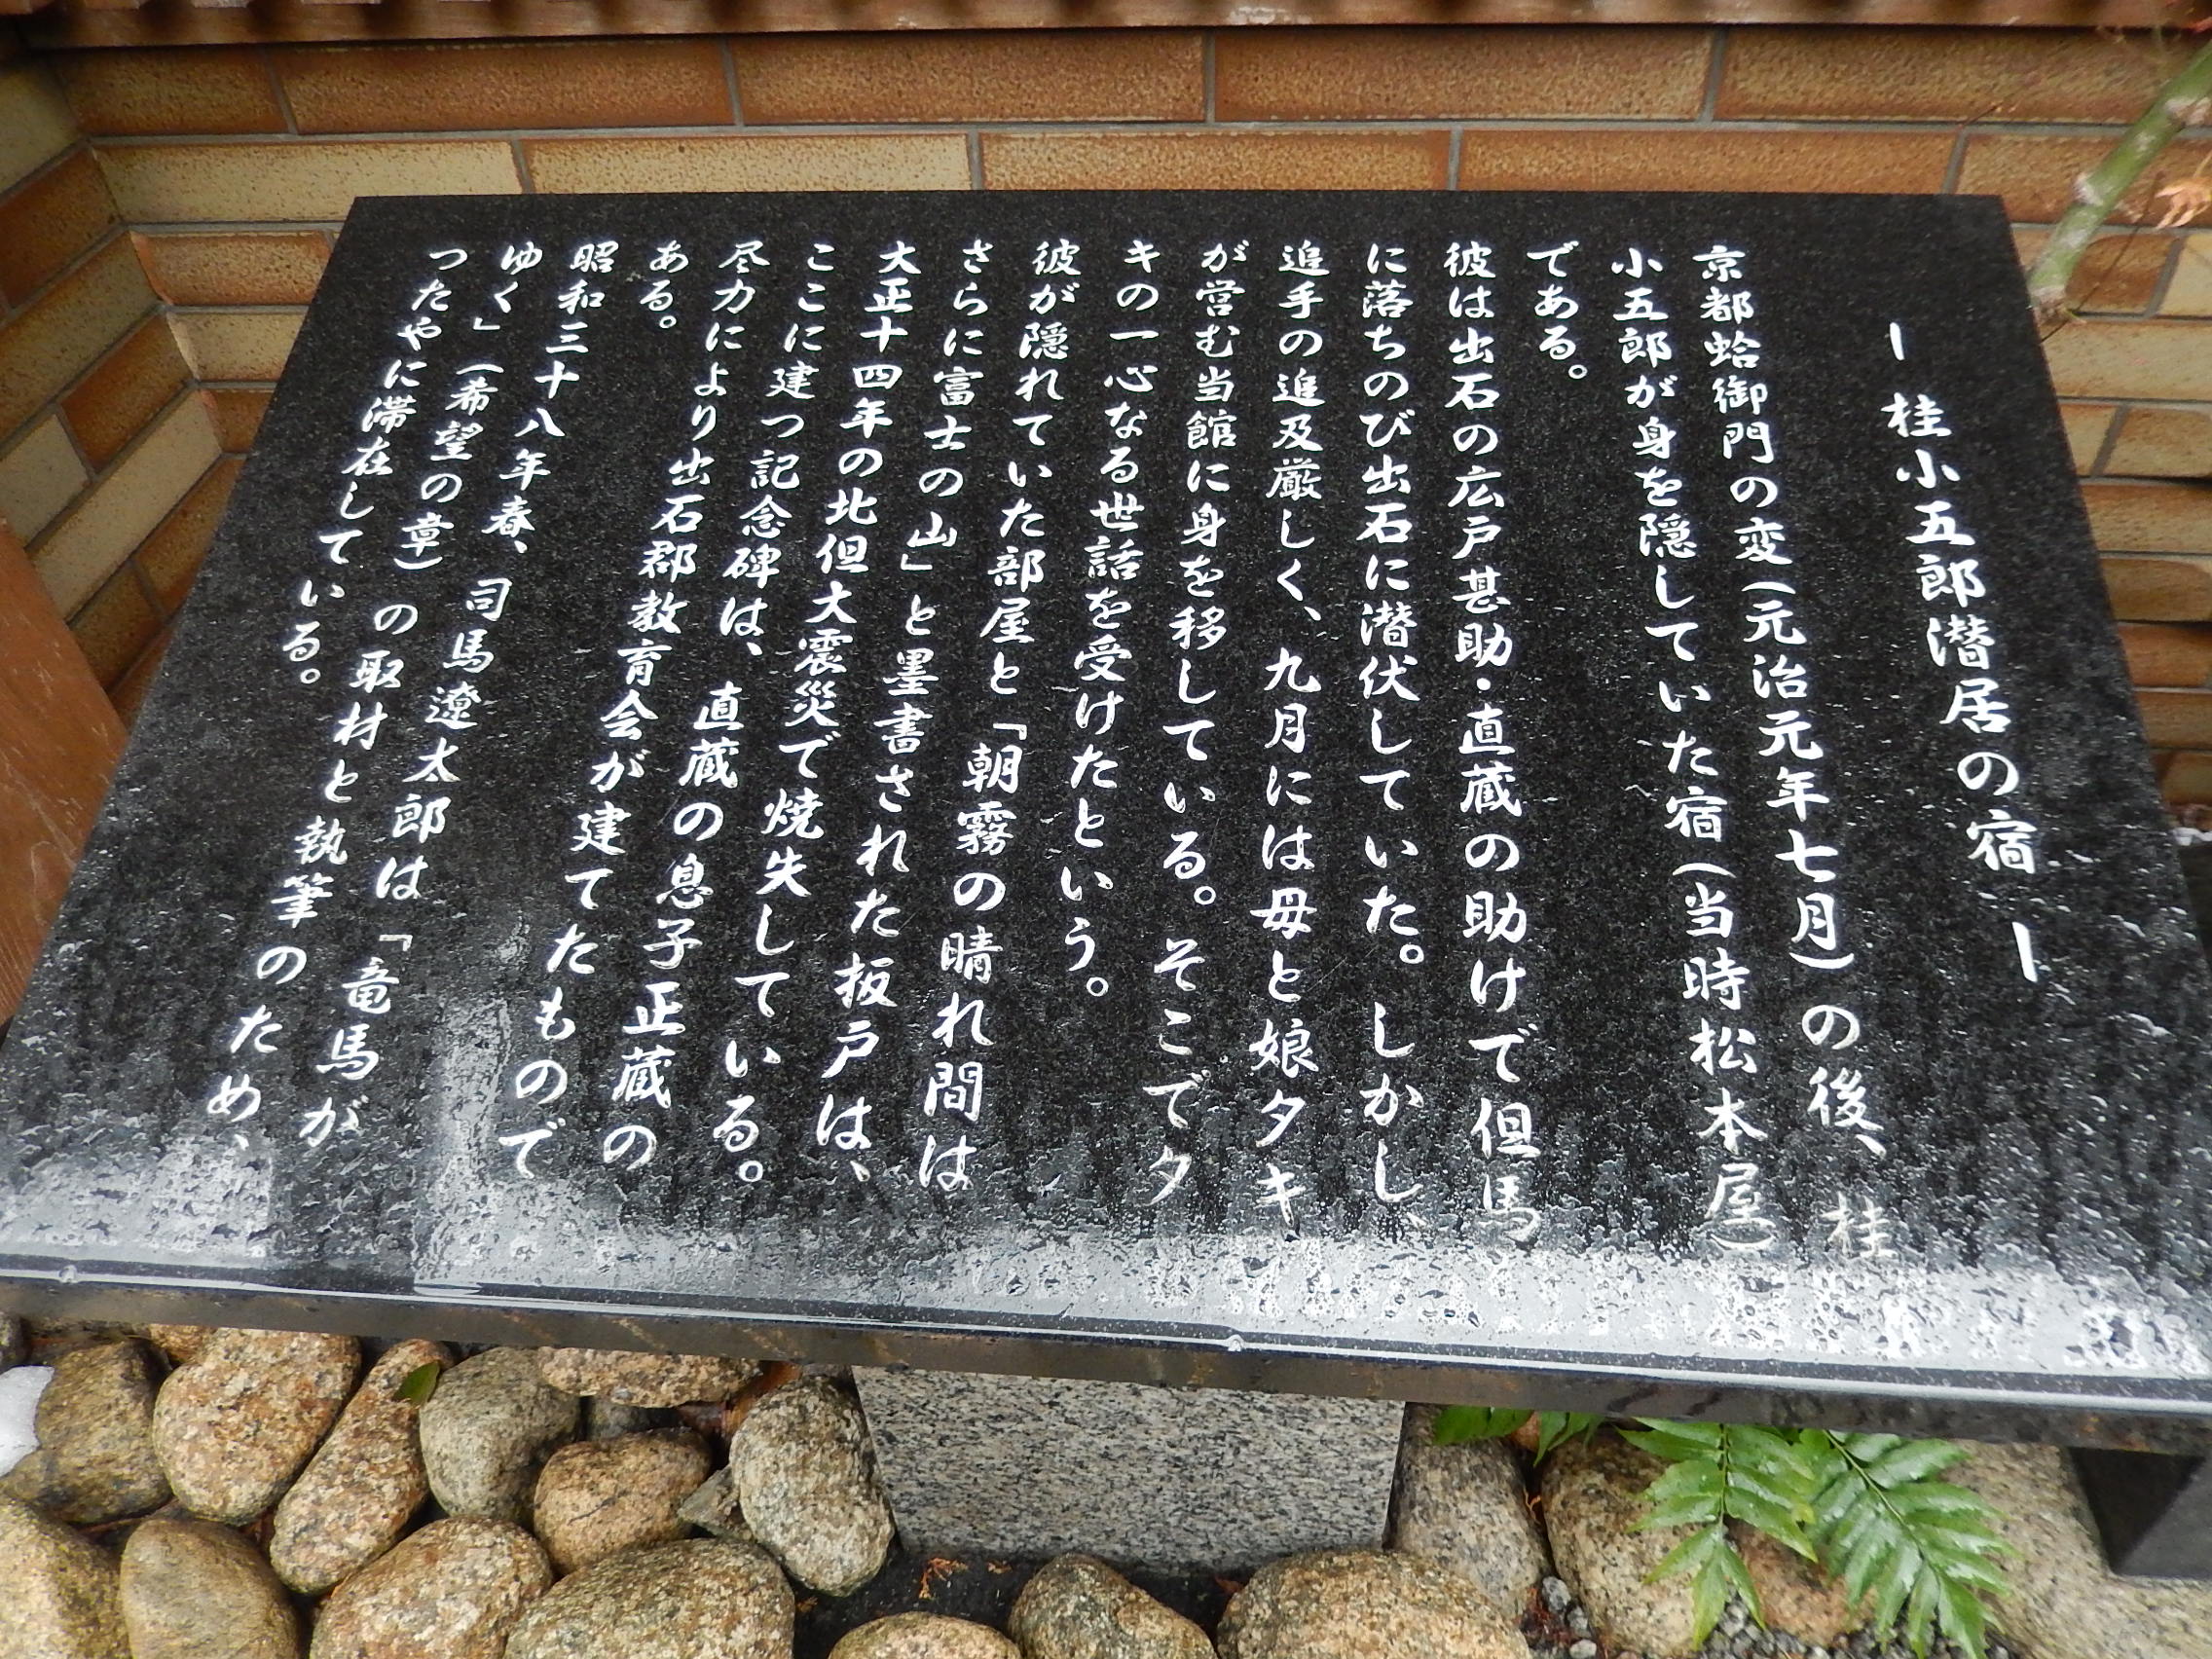 ー桂小五郎潜居の宿ー
京都蛤御門の変(元治元年七月)の後、桂
小五郎が身を隠していた宿(当時松本屋)
である。
彼は出石の広戸甚助・直蔵の助けで但馬
に落ちのび出石に潜伏していた。しかし、
追手の追及厳しく、九月には母と娘タキ
が営む当館に身を移している。そこでタ
キの一心なる世話を受けたという。
彼が隠れていた部屋と「朝霧の晴れ間は
さらに富士の山」と墨書された板戸は、
大正十四年の北但大震災で焼失している。
ここに建つ記念碑は、直蔵の息子正蔵の
尽力により出石郡教育会が建てたもので
ある。
昭和三十八年春、司馬遼太郎は『竜馬が
ゆく」(希望の章)の取材と執筆のため、
つたやに滞在している。